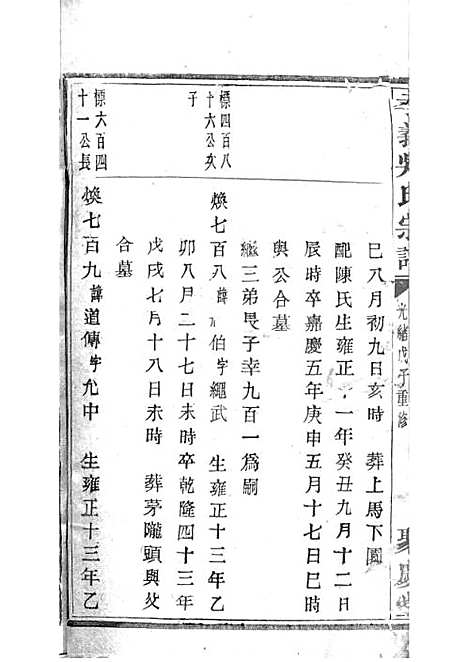 義吳氏宗譜
光緒戊子重修
巳八月初九日亥時 葬上馬下園
配陳氏生雍正十一年癸丑九月十二日
辰時卒嘉慶五年庚申五月十七日巳時
與公合墓
繼三弟畏子幸九百一爲嗣
標四百八
十六公次
子
煥七百八諱九伯字繩武 生雍正十三年乙
卯八月二十七日未時卒乾隆四十三年
戊戌七月十八日未時 葬茅隴頭與父
合墓
標六百四
十一公長
煥七百九諱道傳字允中 生雍正十三年乙